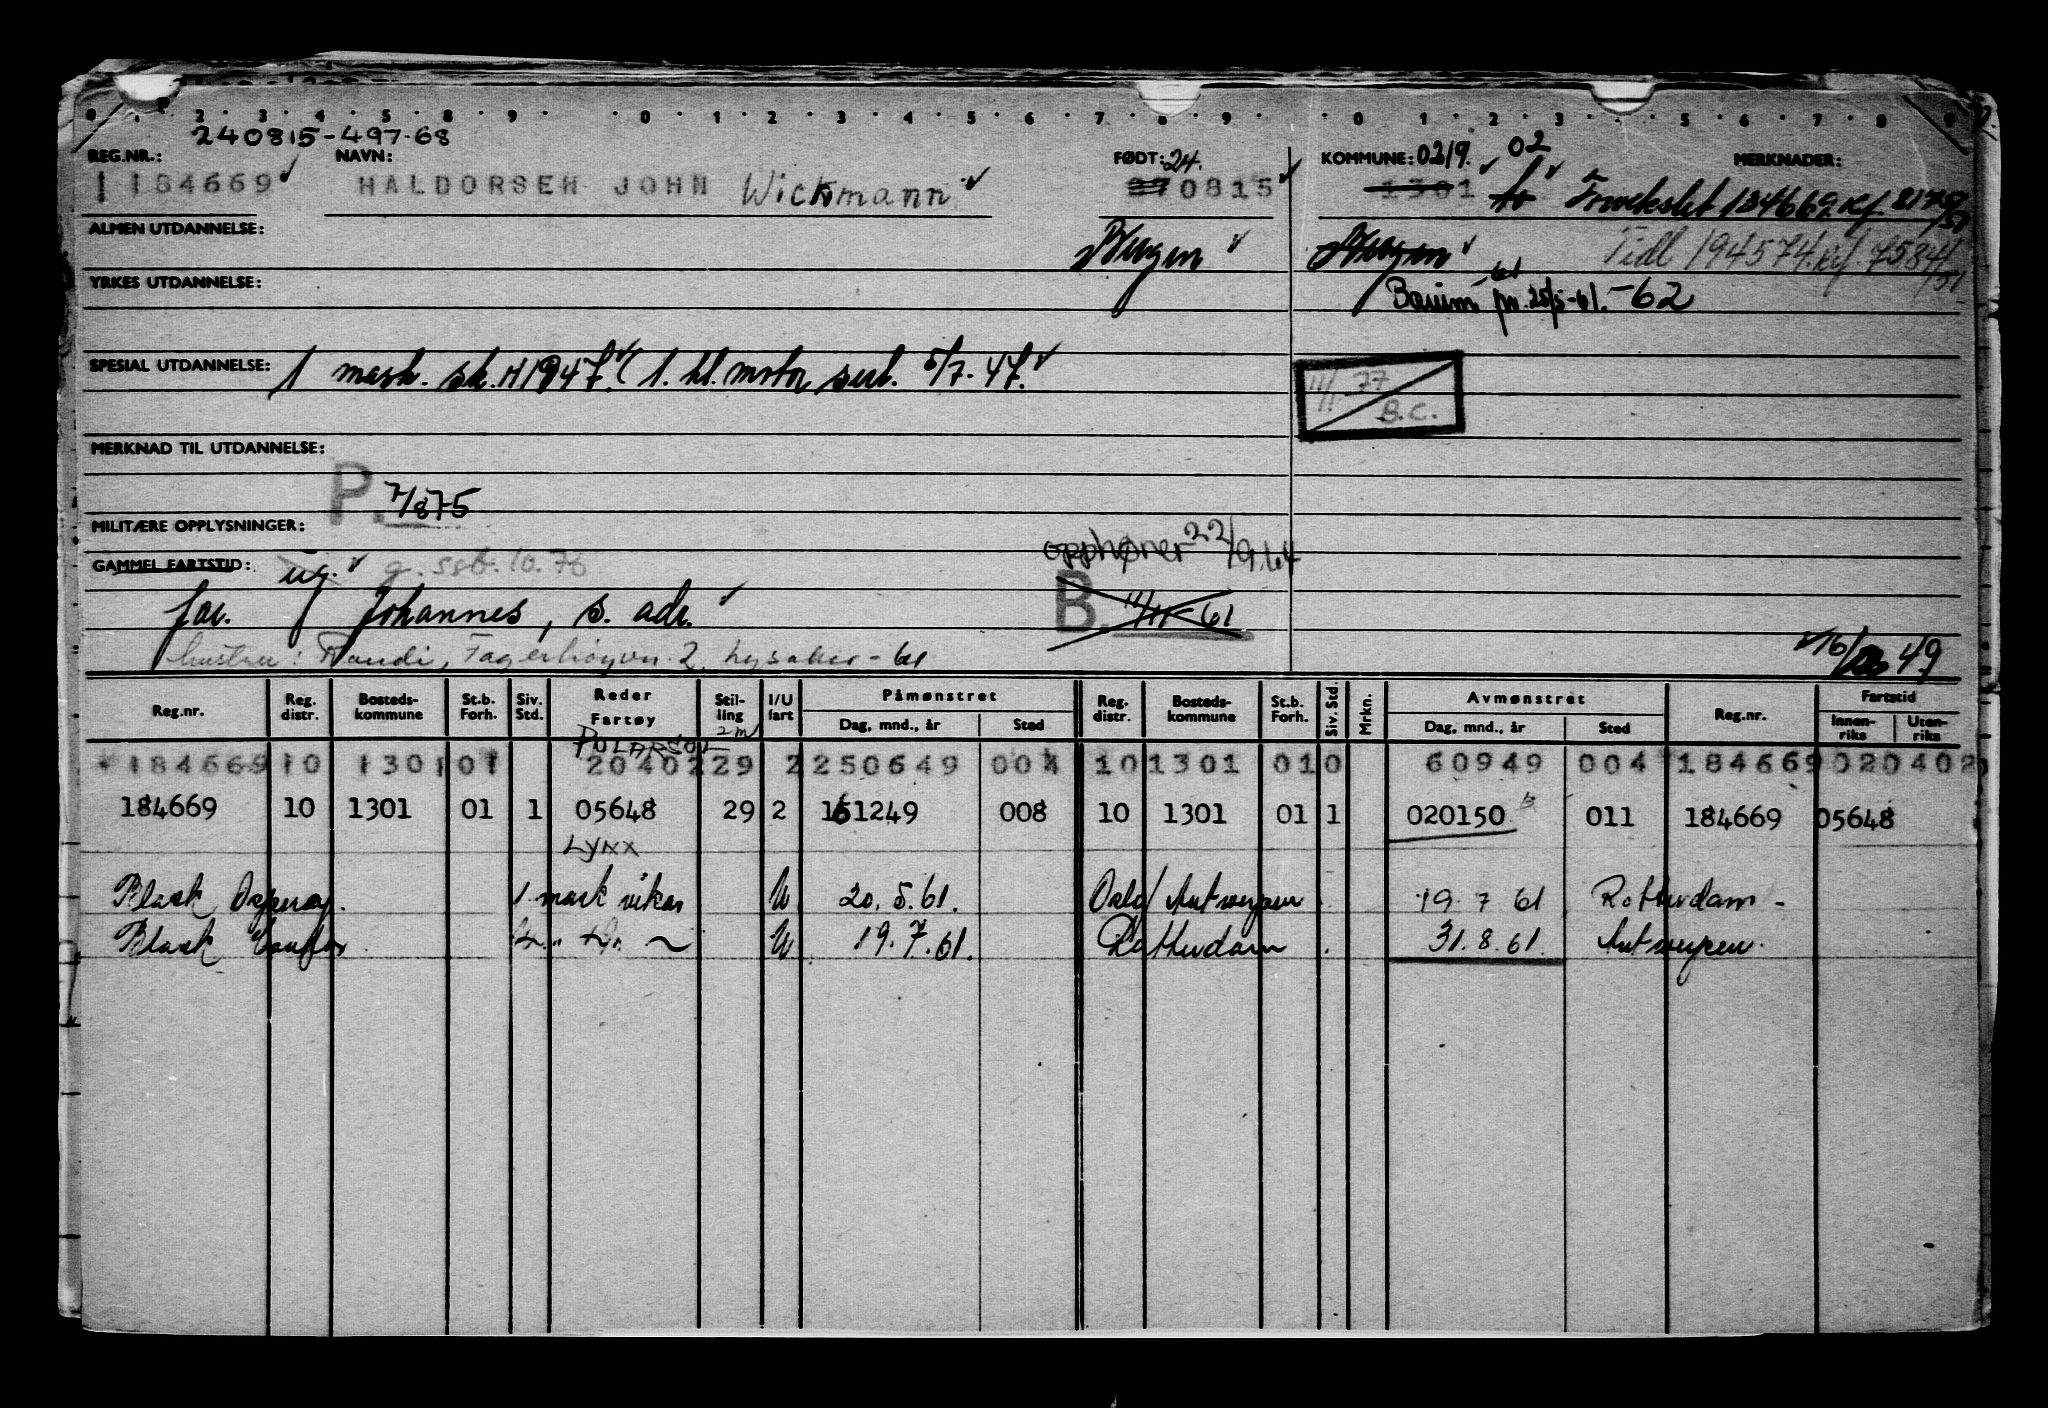 0 · 1 · 2 · 3 · 4 · 5 · 8 · 9 · · 0 · 1 · 2 · 3 · 4 · 5 · 6 · 7 · 8 · 9 · · 0 · 1 · 2 · 3 · 4 · 5 · 6 · 7 · 8 · 9
240815-497-68
REG.NR.: NAVN: FØDT: 24. KOMMUNE: 0219 02 MERKNADER:
184669 HALDORSEN JOHN Wickmann 270815 1301 184669
ALMEN UTDANNELSE: Bergen Bergen Tidl 194574 7584/51
YRKES UTDANNELSE: Bærum pr. 25/5-61. -61 -62
SPESIAL UTDANNELSE: 1 mask. sk. H 1947. 1. kl. motor sert. 5/7-47.
11/11 77
B.C.
MERKNAD TIL UTDANNELSE:
P. 7/8 75
MILITÆRE OPPLYSNINGER:
opphører 22/9.64
GAMMEL FARTSTID: ug. g. ssb. 10.76
far. Johannes, s. adr. B. 11/11-61
hustru: Randi, Fagerhøyvn. 2, Lysaker - 61 16/ 49
Reg.nr. Reg. distr. Bosteds-kommune St.b. Forh. Siv. Std. Reder Fartøy Stil-ling I/U fart Påmønstret Dag, mnd., år Sted Reg. distr. Bosteds-kommune St.b. Forh. Siv. Std. Mrkn. Avmønstret Dag, mnd., år Sted Reg.nr. Fartstid Innen-riks Uten-riks
POLARSOL 2m
184669 10 1301 01 20402 29 2 250649 004 10 1301 01 0 60949 004 184669 020402
184669 10 1301 01 1 05648 29 2 151249 008 10 1301 01 1 020150 011 184669 05648
LYNX
Black Osprey. 1 mask vikar U 20.5.61. Oslo/Antwerpen 19.7 61 Rotterdam -
Black Condor U. 19.7.61. Rotterdam 31.8.61. Antwerpen.